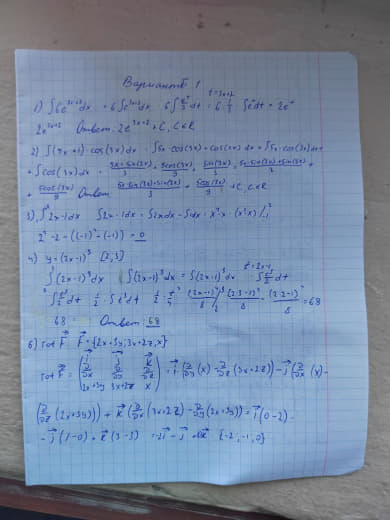 Вариант 1
t=3x+2
1) ∫6e^{3x+2}dx = 6∫e^{3x+2}dx 6∫e^t/3 dt = 6·1/3 ∫e^t dt = 2e^t
2e^{3x+2} Ответ: 2e^{3x+2}+C, C∈R
2) ∫(5x+1)·cos(3x)dx ∫5x·cos(3x)+cos(3x)dx = ∫5x·cos(3x)dx+
+∫cos(3x)dx = 5x·sin(3x)/3 + 5cos(3x)/9 + sin(3x)/3 = 5x·sin(3x)+sin(3x)/3 +
+ 5cos(3x)/9 Ответ 5x·sin(3x)+sin(3x)/3 + 5cos(3x)/9 +C, C∈R
3) ∫2x-1dx ∫2x-1dx = ∫2xdx-∫1dx = x²-x = (x²-x)|
2²-2-((-1)²-(-1)) = 0
4) y=(2x-1)³ [2,3]
t=2x-1
∫(2x-1)³dx ∫(2x-1)³dx = ∫(2x-1)³dx = ∫t³/2 dt
∫t³/2 dt 1/2·∫t³dt 1/2·t⁴/4 (2x-1)⁴/8 (2·3-1)⁴/8 - (2·2-1)⁴/8 = 68
68 Ответ: 68
6) rot F F={2x+3y; 3x+2z; x}
rot F = (i j k
∂/∂x ∂/∂y ∂/∂z
2x+3y 3x+2z x) = i(∂/∂y(x)-∂/∂z(3x+2z))-j(∂/∂x(x)-
(∂/∂z(2x+3y))+k(∂/∂x(3x+2z)-∂/∂y(2x+3y)) = i(0-2)-
-j(1-0)+k(3-3) = -2i-j+0k {-2,-1,0}